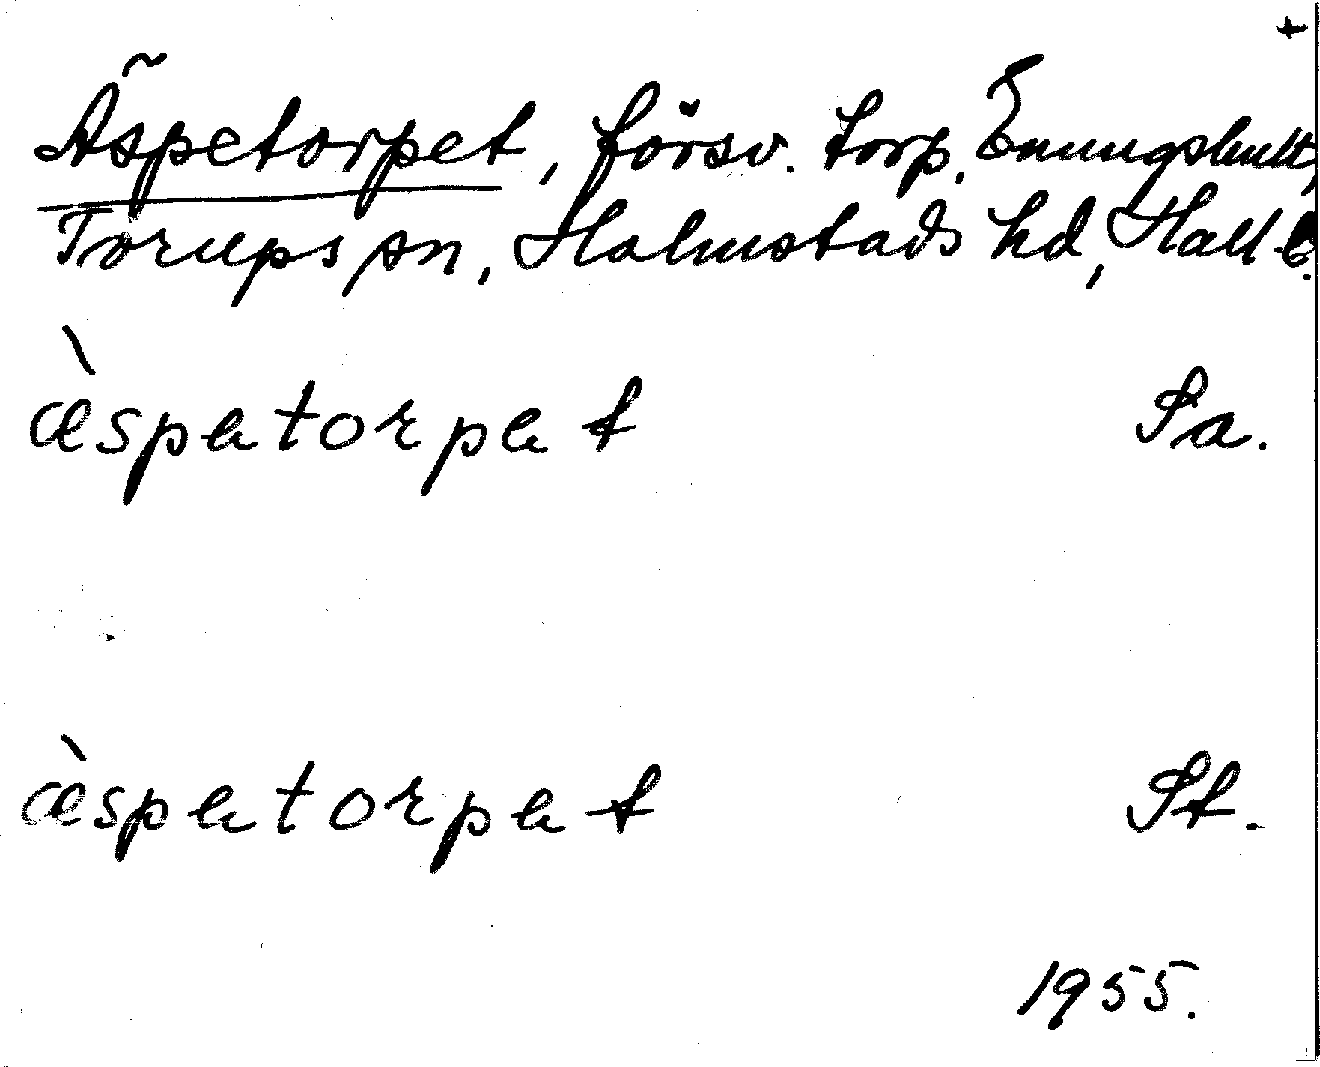 +
Äspetorpet, försv. torp, Enningshult,
Torups sn, Halmstads hd, Hall. l.
æ̀spetorpet Sa.
æ̀spetorpet St.
1955.